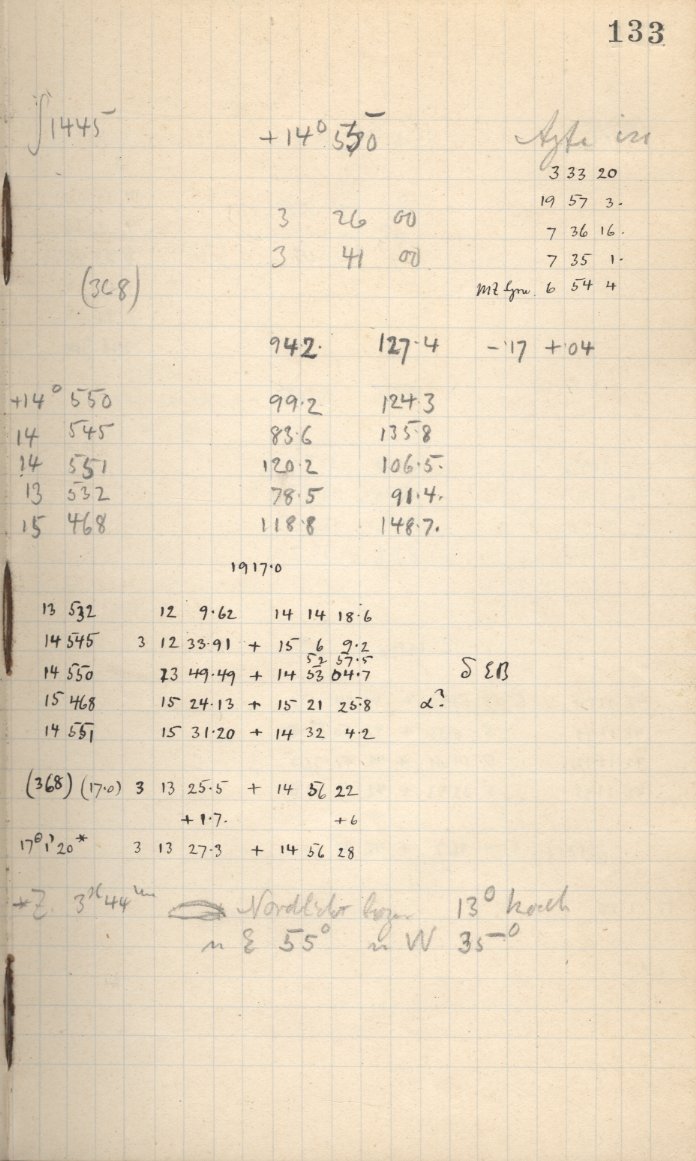 133
∫1445 +14° 550
3 33 20
19 57 3.
3 26 00 7 36 16.
3 41 00 7 35 1.
(368) 6 54 4
94.2. 127.4 -·17 +·04
+14° 550 99.2 124.3
14 545 83.6 135.8
14 551 120.2 106.5.
13 532 78.5 91.4.
15 468 118.8 148.7.
1917.0
13 532 12 9.62 14 14 18.6
14 545 3 12 33.91 + 15 6 9.2
52 57.5
14 550 13 49.49 + 14 53 04.7 δ EB
15 468 15 24.13 + 15 21 25.8 α?
14 551 15 31.20 + 14 32 4.2
(368) (17.0) 3 13 25.5 + 14 56 22
+1.7. +6
3 13 27.3 + 14 56 28
Z. 3 44 Nordlicht 13° hoch
n E 55° n W 35°